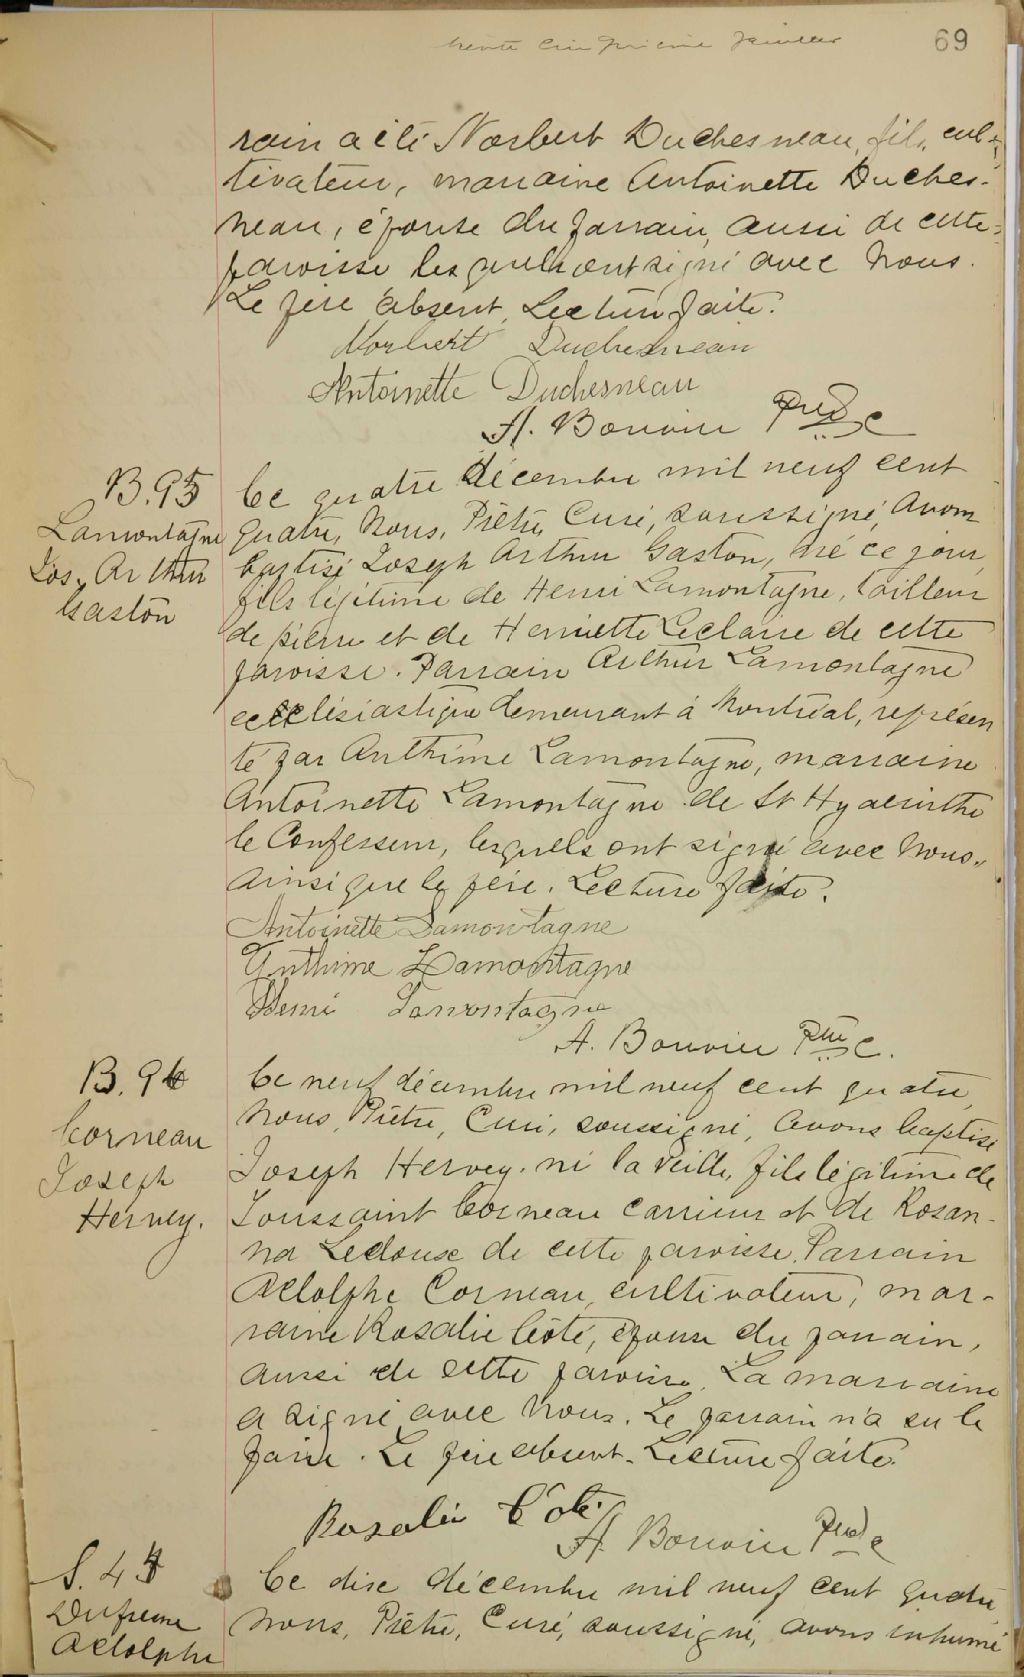 trente cinquième feuillet
69
rain a été Norbert Duchesneau, fils, cul-
tivateur, marraine Antoinette Duches-
neau, épouse du parrain, aussi de cette
paroisse lesquels ont signé avec Nous.
Le père absent, Lecture faite.
Norbert Duchesneau
Antoinette Duchesneau
A. Bouvier Ptre C
B. 95
Lamontagne
Jos. Arthur
Gaston
Ce quatre décembre mil neuf cent
quatre, Nous, Prêtre, Curé, soussigné, avons
baptisé Joseph Arthur Gaston, né ce jour,
fils légitime de Henri Lamontagne, tailleur
de pierre et de Henriette Leclaire de cette
paroisse. Parrain Arthur Lamontagne
ecclésiastique demeurant à Montréal, représen
té par Anthime Lamontagne, marraine
Antoinette Lamontagne de St Hyacinthe
le Confesseur, lesquels ont signé avec Nous,
ainsi que le père. Lecture faite.
Antoinette Lamontagne
Anthime Lamontagne
Henri Lamontagne
A. Bouvier Ptre C.
B. 96
Corneau
Joseph
Hervey.
Ce neuf décembre mil neuf cent quatre,
Nous, Prêtre, Curé, soussigné, avons baptisé
Joseph Hervey. né la veille, fils légitime de
Toussaint Corneau carrieur et de Rosan-
na Ledouse de cette paroisse. Parrain
Adolphe Corneau, cultivateur, mar-
raine Rosalie Côté, épouse du parrain,
aussi de cette paroisse. La marraine
a signé avec Nous. Le parrain n'a su le
faire. Le père absent. Lecture faite.
Rosalie Côté
A. Bouvier Ptre C
S. 44
Dufresne
Adolphe
Ce dix décembre mil neuf cent quatre,
Nous, Prêtre, Curé, soussigné, avons inhumé